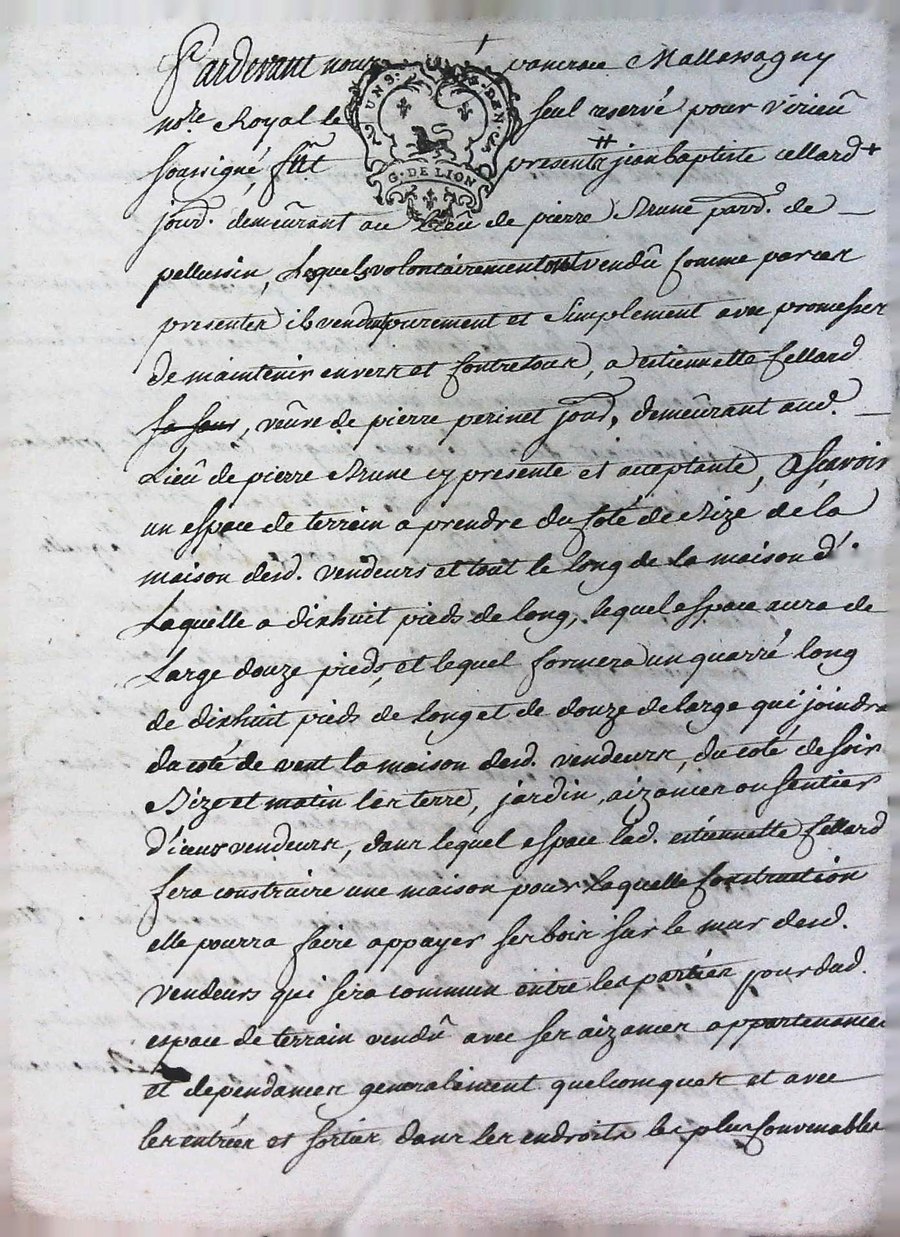 Pardevant nous pancrace Mallassagny
no.re Royal le seul reservé pour virieû
soussigné, fût presents jean baptiste cellard +
jour.d demeûrant au Lieû de pierre Brune parr.d de
pellussin, Lequels volontairement ont vendû comme par ces
presentes ils vendent purement et Simplement avec promesses
de maintenir envers et contre tous, a estiennette Cellard
sa sœur, veûve de pierre perinet jour.d, demeûrant aud.
Lieû de pierre Brune cy presente et acceptante, a Scavoir
un espace de terrain a prendre du Coté de Bize de la
maison desd. vendeurs et tout le long de la maison d'.
Laquelle a dixhuit pieds de long, lequel espace aura de
Large douze pieds, et lequel formera un quarré long
de dixhuit pieds de long et de douze de large qui joindra
du coté de vent la maison desd. vendeurs, du coté de soir
Bize et matin les terre, jardin, aizances ou sentier
d'iceux vendeurs, dans lequel espace lad. estiennette Cellard
fera construire une maison pour laquelle Construction
elle pourra faire appayer ses bois sur le mur desd.
vendeurs qui sera commun entre les parties jouxs dud.
espace de terrain vendû avec ses aizances appartenances
et dependances generalement quelconques et avec
les entrées et sorties dans les endroits les plus Convenables
UNS. DEN.
G. DE LION